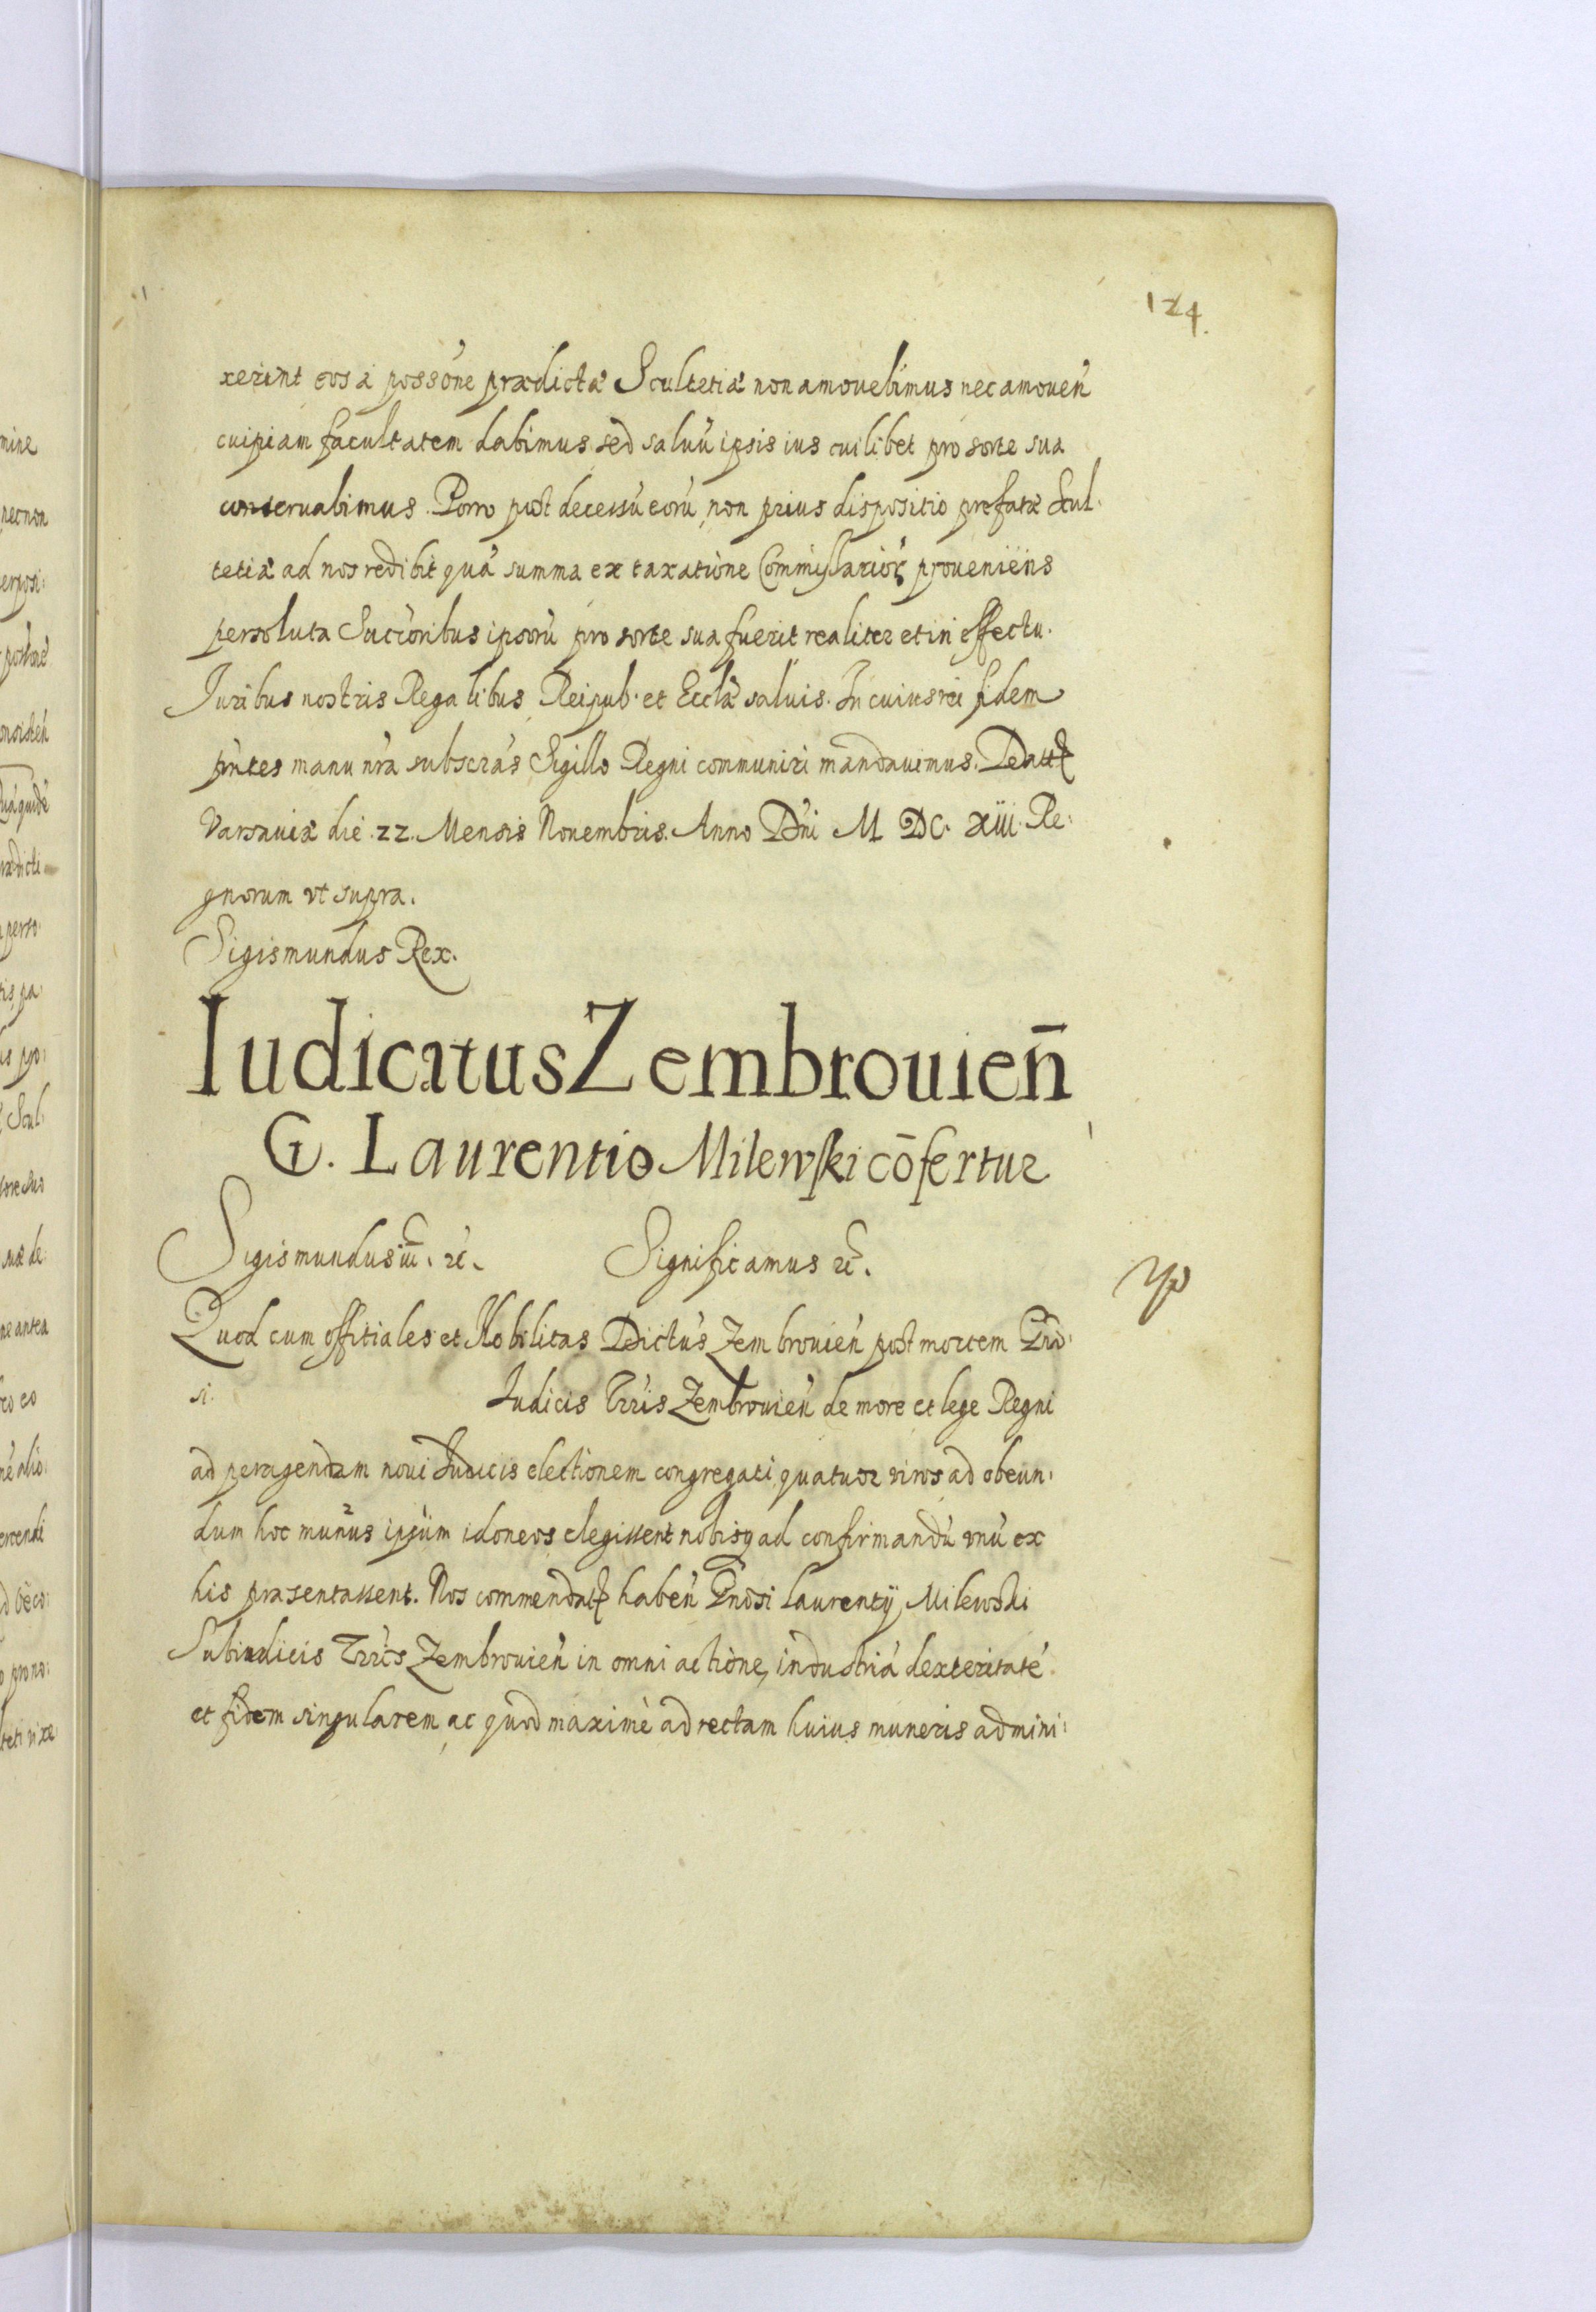 124.
xerint eos á possóne prædictæ Scultetiæ non amouebimus nec amoueń
cuipiam facultatem dabimus sed saluú ipsis ius cuilibet pro sorte sua
conseruabimus. Porro post decessú eorú non prius dispositio prefatæ Scul:
tetiæ ad nos redibit quá summa ex taxatione Commissarioꝝ proueniens
persoluta Succoribus ipsorú pro sorte sua fuerit realiter et in effectu.
Iuribus nostris Regalibus Reipub. et Ecclæ saluis. In cuius rei fidem
pńtes manu nrá subscrás Sigillo Regni communiri mandauimus. Datt
Varsauiæ die .22. Mensis Nouembris. Anno Dńi M DC. XIII. Re:
gnorum vt supra.
Sigismundus Rex.
Iudicatus Zembrouień
G. Laurentio Milewski cōfertur
Sigismundus iii. rc. Significamus rc.
Quod cum offitiales et Nobilitas Dictús Zembrouień post mortem Gńo:
si. Iudicis Trris Zembrouień de more et lege Regni
ad peragendam noui Iudicis electionem congregati quatuor viros ad obeun:
dum hoc munus ipsum idoneos elegissent nobisq ad confirmandú vnú ex
his præsentassent. Nos commendatt habeń Gnosi Laurentÿ Milewski
Subiudicis Trris Zembrouień in omni actione, industriá dexteritaté
et fidem singularem ac quod maximè ad rectam huius muneris admini: